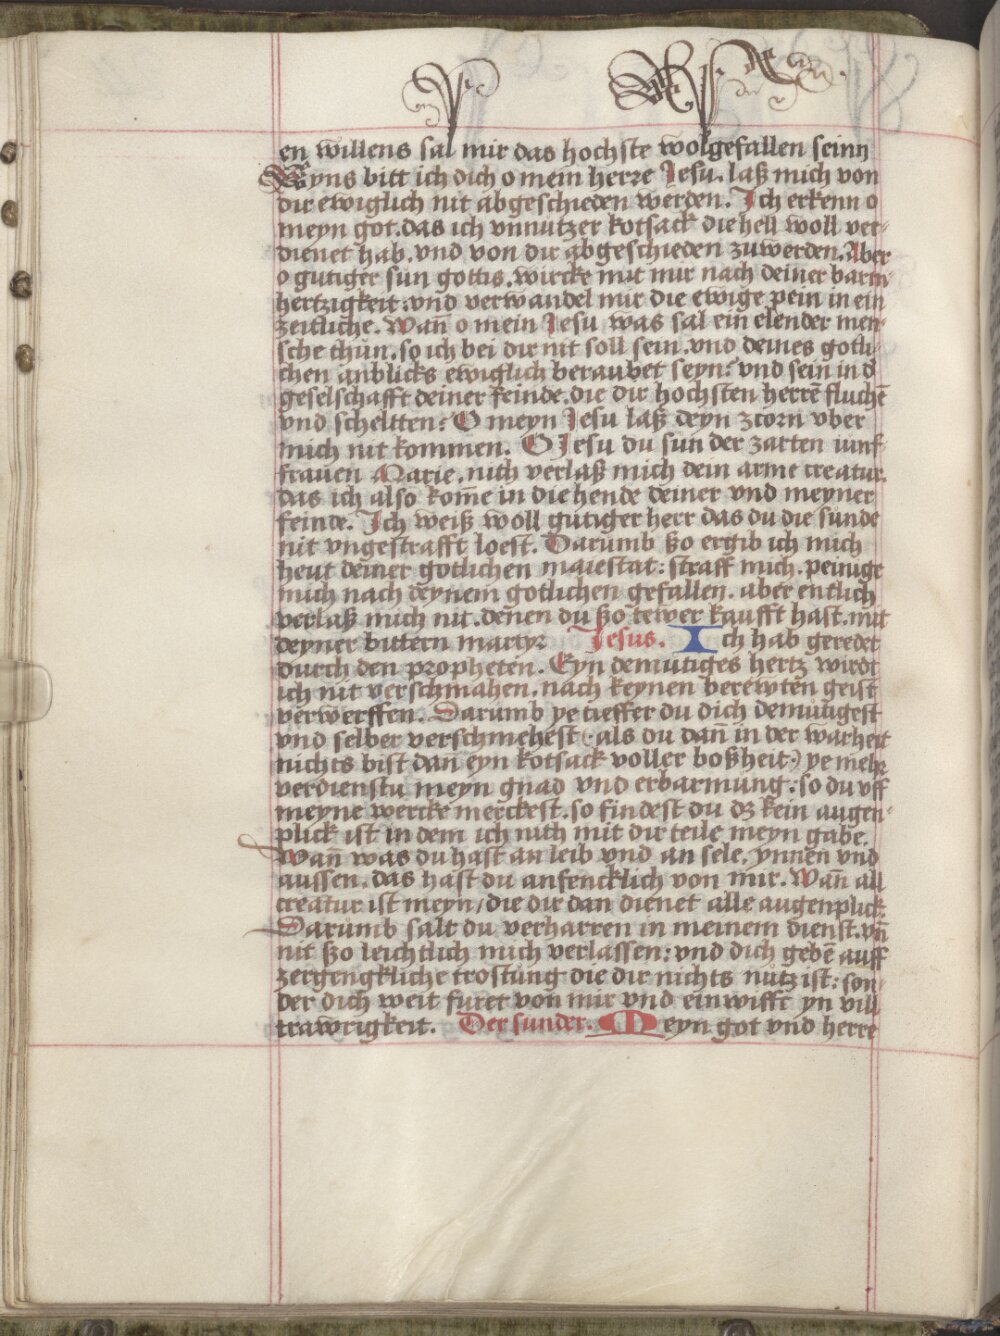 en willens sal mir das hochste wolgefallen seinn
Eyns bitt ich dich o mein herre Jesu. laß mich von
dir ewiglich nit abgeschieden werden. Ich erkenn o
meyn got. das ich vnnutzer kotsack die hell woll ver-
dienet hab. vnd von dir abgeschieden zuwerden. Aber
o gutiger sun gottis. wircke mit mir nach deiner barm-
hertzigkeit: vnd verwandel mir die ewige pein in ein
zeitliche. Wañ o mein Jesu was sal ein elender men-
sche thun. so ich bei dir nit soll sein. vnd deines gotli-
chen anblicks ewiglich beraubet seyn: vnd sein in d
geselschafft deiner feinde. die dir hochsten herrē fluchē
vnd scheltten: O meyn Jesu laß deyn zcorn vber
mich nit kommen. O Jesu du sun der zarten iunf-
frauen Marie. nith verlaß mich dein arme creatur.
das ich also kom̄e in die hende deiner vnd meyner
feinde. Ich weiß woll gutiger herr das du die sunde
nit vngestrafft loest. Darumb ßo ergib ich mich
heut deiner gotlichen maiestat: straff mich. peinige
mich nach deynem gotlichen gefallen. aber entlich
verlaß mich nit. denen du ßo tewer kaufft hast. mit
deyner bittern martyr Jesus. Ich hab geredet
durch den propheten. Eyn demutiges hertz wirdt
ich nit verschmahen. nach keynen berewten geist
verwerffen. Darumb ye tieffer du dich demutigest
vnd selber verschmehest (als du dañ in der warheit
nichts bist dañ eyn kotsack voller boßheit) ye mehr
verdienstu meyn gnad vnd erbarmung: so du vff
meyne wercke merckest. so findest du dz kein augen-
plick ist in dem ich nith mit dir teile meyn gabe.
Wañ was du hast an leib vnd an sele. ynnen vnd
aussen. das hast du anfencklich von mir. Wañ all
creatur ist meyn / die dir dan dienet alle augenplick.
Darumb salt du verharren in meinem dienst. vñ
nit ßo leichtlich mich verlassen: vnd dich gebē auff
zergengkliche trostung die dir nichts nutz ist: son-
der dich weit furet von mir vnd einwifft yn vill
trawrigkeit. Der sunder. Meyn got vnd herre